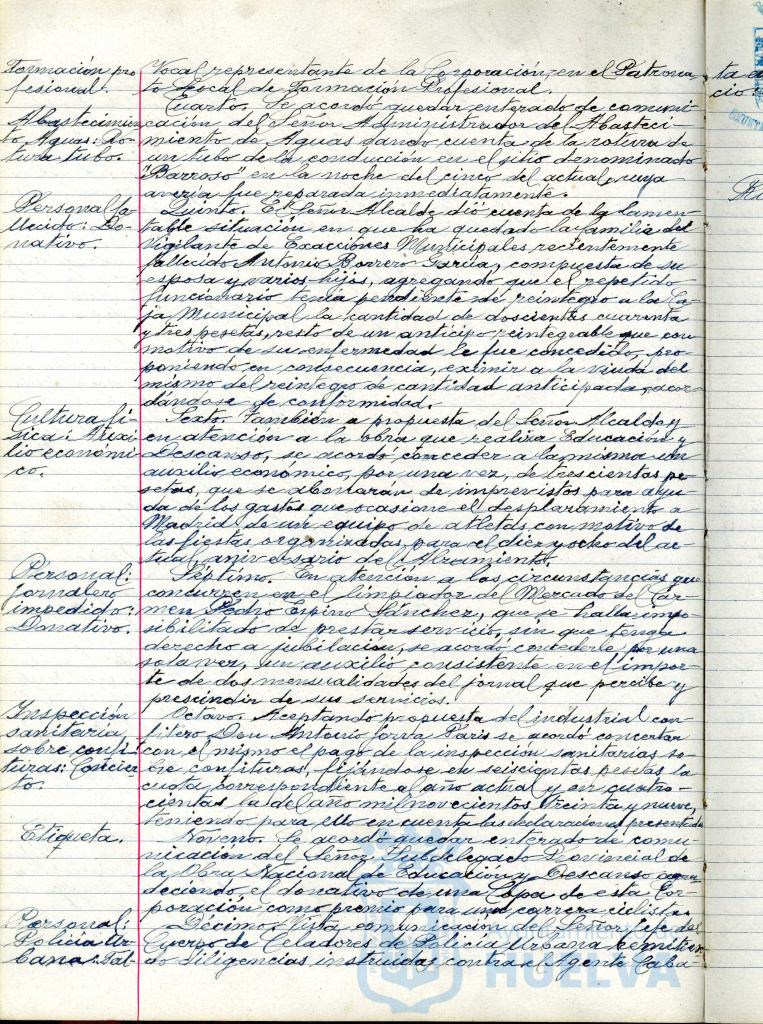 Formación pro
fesional.
Vocal representante de la Corporación, en el Patrona
to Local de Formación Profesional.
Abastecimien
to Aguas: Ro-
tura tubo.
Cuarto. Se acordó quedar enterado de comuni
cación del Señor Administrador de Abasteci-
miento de Aguas dando cuenta de la rotura de
un tubo de la conducción en el sitio denominado
"Barroso" en la noche del cinco del actual, cuya
avería fue reparada inmediatamente.
Personal fa
llecido: Do-
nativo.
Quinto. El Señor Alcalde dió cuenta de la lamen-
table situación en que ha quedado la familia del
Vigilante de Exacciones Municipales recientemente
fallecido Antonio Borrero García, compuesta de su
esposa y varios hijos, agregando que el repetido
funcionario tenia pendiente de reintegro a la Ca
ja Municipal la cantidad de doscientas cuarenta
y tres pesetas, resto de un anticipo reintegrable que con
motivo de su enfermedad le fue concedido, pro-
poniendo en consecuencia, eximir a la viuda del
mismo del reintegro de cantidad anticipada, acor
dándose de conformidad.
Cultura fí-
sica: Auxi-
lio económi
co.
Sexto. También a propuesta del Señor Alcalde y
en atención a la obra que realiza Educación y
Descanso, se acordó conceder a la misma un
auxilio económico, por una vez, de trescientas pe
setas, que se abonarán de imprevistos para ayu
da de los gastos que ocasione el desplazamiento a
Madrid de un equipo de atletas con motivo de
las fiestas organizadas para el diez y ocho del ac-
tual, aniversario del Alzamiento.
Personal:
jornalero
impedido:
Donativo.
Séptimo. En atención a las circunstancias que
concurren en el limpiador del Mercado del Car-
men Pedro Espino Sánchez, que se halla impo
sibilitado de prestar servicio, sin que tenga
derecho a jubilación, se acordó concederle por una
sola vez, un auxilio consistente en el impor-
te de dos mensualidades del jornal que percibe y
prescindir de sus servicios.
Inspección
sanitaria
sobre confi
turas: Concier
to.
Octavo. Aceptando propuesta del industrial con-
fitero Don Antonio Jorva Paris se acordó concertar
con el mismo el pago de la inspección sanitarias so-
bre confituras, fijándose en seiscientas pesetas la
cuota correspondiente al año actual y en cuatro-
cientas la del año mil novecientos treinta y nueve,
teniendo para ello en cuenta las declaraciones presentadas
Etiqueta.
Noveno. Se acordó quedar enterado de comu-
nicación del Señor Subdelegado Provincial de
la Obra Nacional de Educación y Descanso agra-
deciendo el donativo de una Copa de esta Cor-
poración como premio para una carrera ciclista.
Personal:
Policía Ur-
bana: Fal-
Décimo. Vista comunicación del Señor Jefe del
Cuerpo de Celadores de Policía Urbana remitien
do diligencias instruidas contra el Agente Caba
HUELVA
ta a
cio: